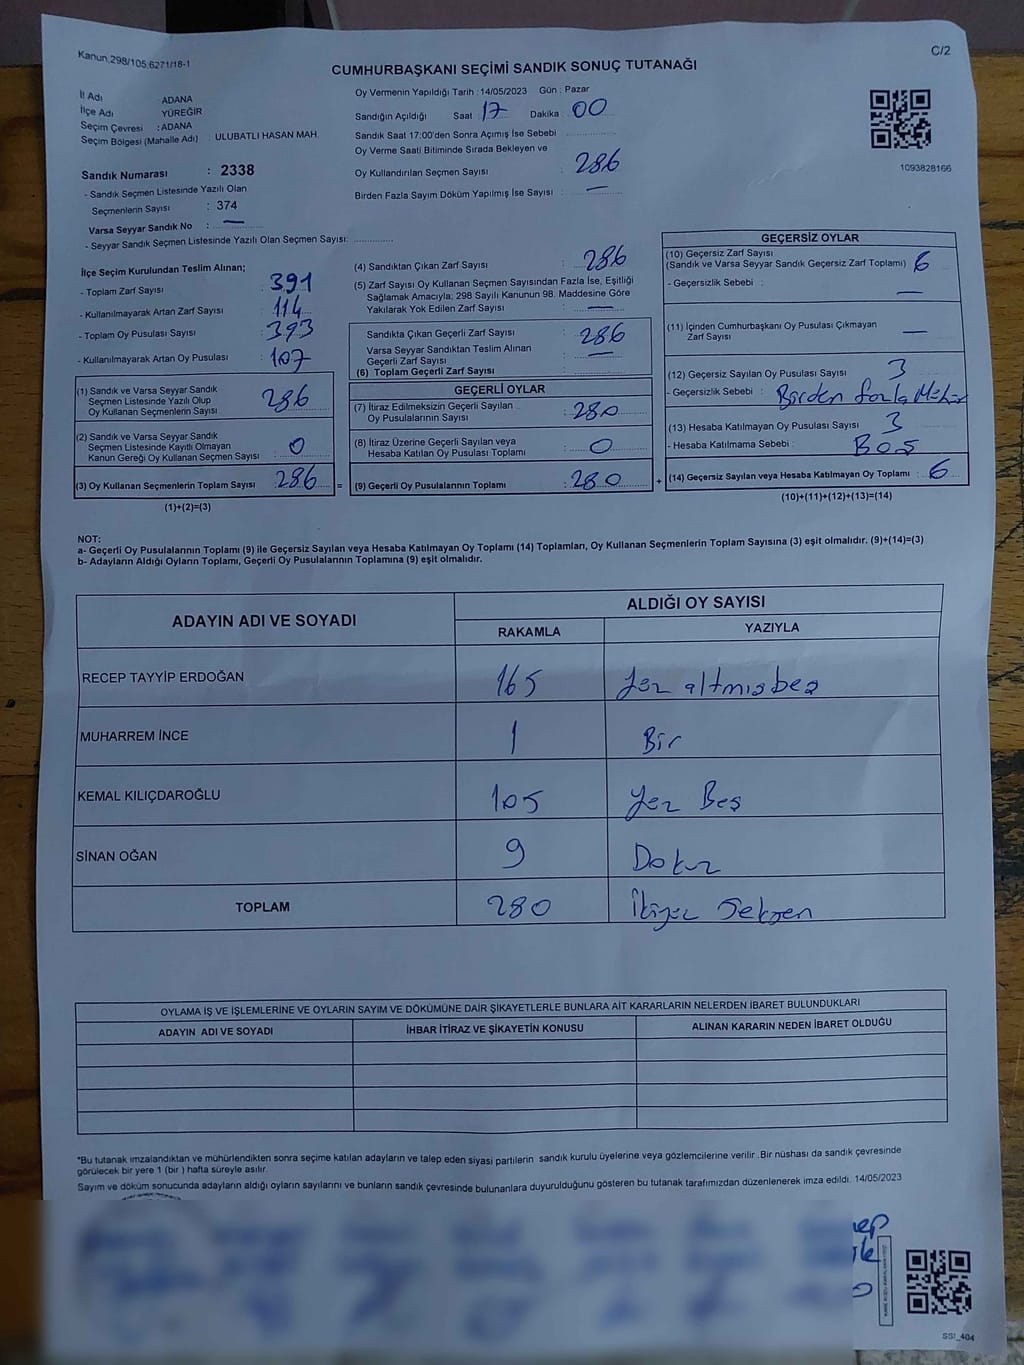 Kanun.298/105;6271/18-1
C/2
CUMHURBAŞKANI SEÇİMİ SANDIK SONUÇ TUTANAĞI
İl Adı ADANA
İlçe Adı YÜREĞİR
Seçim Çevresi : ADANA
Seçim Bölgesi (Mahalle Adı) ULUBATLI HASAN MAH.
Sandık Numarası : 2338
- Sandık Seçmen Listesinde Yazılı Olan
Seçmenlerin Sayısı : 374
Varsa Seyyar Sandık No : —
- Seyyar Sandık Seçmen Listesinde Yazılı Olan Seçmen Sayısı: ..............
Oy Vermenin Yapıldığı Tarih : 14/05/2023 Gün : Pazar
Sandığın Açıldığı Saat 17 Dakika 00
Sandık Saat 17:00'den Sonra Açımış İse Sebebi
Oy Verme Saati Bitiminde Sırada Bekleyen ve
Oy Kullandırılan Seçmen Sayısı : 286
Birden Fazla Sayım Döküm Yapılmış İse Sayısı : —
1093828166
İlçe Seçim Kurulundan Teslim Alınan;
- Toplam Zarf Sayısı : 391
- Kullanılmayarak Artan Zarf Sayısı : 114
- Toplam Oy Pusulası Sayısı : 393
- Kullanılmayarak Artan Oy Pusulası : 107
(1) Sandık ve Varsa Seyyar Sandık
Seçmen Listesinde Yazılı Olup
Oy Kullanan Seçmenlerin Sayısı : 286
(2) Sandık ve Varsa Seyyar Sandık
Seçmen Listesinde Kayıtlı Olmayan
Kanun Gereği Oy Kullanan Seçmen Sayısı : 0
(3) Oy Kullanan Seçmenlerin Toplam Sayısı : 286 =
(1)+(2)=(3)
(4) Sandıktan Çıkan Zarf Sayısı : 286
(5) Zarf Sayısı Oy Kullanan Seçmen Sayısından Fazla İse, Eşitliği
Sağlamak Amacıyla; 298 Sayılı Kanunun 98. Maddesine Göre
Yakılarak Yok Edilen Zarf Sayısı : —
Sandıkta Çıkan Geçerli Zarf Sayısı : 286
Varsa Seyyar Sandıktan Teslim Alınan
Geçerli Zarf Sayısı : —
(6) Toplam Geçerli Zarf Sayısı :
GEÇERLİ OYLAR
(7) İtiraz Edilmeksizin Geçerli Sayılan
Oy Pusulalarının Sayısı : 280
(8) İtiraz Üzerine Geçerli Sayılan veya
Hesaba Katılan Oy Pusulası Toplamı : 0
(9) Geçerli Oy Pusulalarının Toplamı : 280 +
GEÇERSİZ OYLAR
(10) Geçersiz Zarf Sayısı
(Sandık ve Varsa Seyyar Sandık Geçersiz Zarf Toplamı) : 6
- Geçersizlik Sebebi : —
(11) İçinden Cumhurbaşkanı Oy Pusulası Çıkmayan
Zarf Sayısı —
(12) Geçersiz Sayılan Oy Pusulası Sayısı : 3
- Geçersizlik Sebebi : Birden fazla Mühür
(13) Hesaba Katılmayan Oy Pusulası Sayısı : 3
- Hesaba Katılmama Sebebi : BOŞ
(14) Geçersiz Sayılan veya Hesaba Katılmayan Oy Toplamı : 6
(10)+(11)+(12)+(13)=(14)
NOT:
a- Geçerli Oy Pusulalarının Toplamı (9) ile Geçersiz Sayılan veya Hesaba Katılmayan Oy Toplamı (14) Toplamları, Oy Kullanan Seçmenlerin Toplam Sayısına (3) eşit olmalıdır. (9)+(14)=(3)
b- Adayların Aldığı Oyların Toplamı, Geçerli Oy Pusulalarının Toplamına (9) eşit olmalıdır.
ADAYIN ADI VE SOYADI ALDIĞI OY SAYISI
RAKAMLA YAZIYLA
RECEP TAYYİP ERDOĞAN 165 Yüz altmışbeş
MUHARREM İNCE 1 Bir
KEMAL KILIÇDAROĞLU 105 Yüz Beş
SİNAN OĞAN 9 Dokuz
TOPLAM 280 İkiyüz Seksen
OYLAMA İŞ VE İŞLEMLERİNE VE OYLARIN SAYIM VE DÖKÜMÜNE DAİR ŞİKAYETLERLE BUNLARA AİT KARARLARIN NELERDEN İBARET BULUNDUKLARI
ADAYIN ADI VE SOYADI İHBAR İTİRAZ VE ŞİKAYETİN KONUSU ALINAN KARARIN NEDEN İBARET OLDUĞU
*Bu tutanak imzalandıktan ve mühürlendikten sonra seçime katılan adayların ve talep eden siyasi partilerin sandık kurulu üyelerine veya gözlemcilerine verilir .Bir nüshası da sandık çevresinde
görülecek bir yere 1 (bir ) hafta süreyle asılır.
Sayım ve döküm sonucunda adayların aldığı oyların sayılarını ve bunların sandık çevresinde bulunanlara duyurulduğunu gösteren bu tutanak tarafımızdan düzenlenerek imza edildi. 14/05/2023
SSI_404